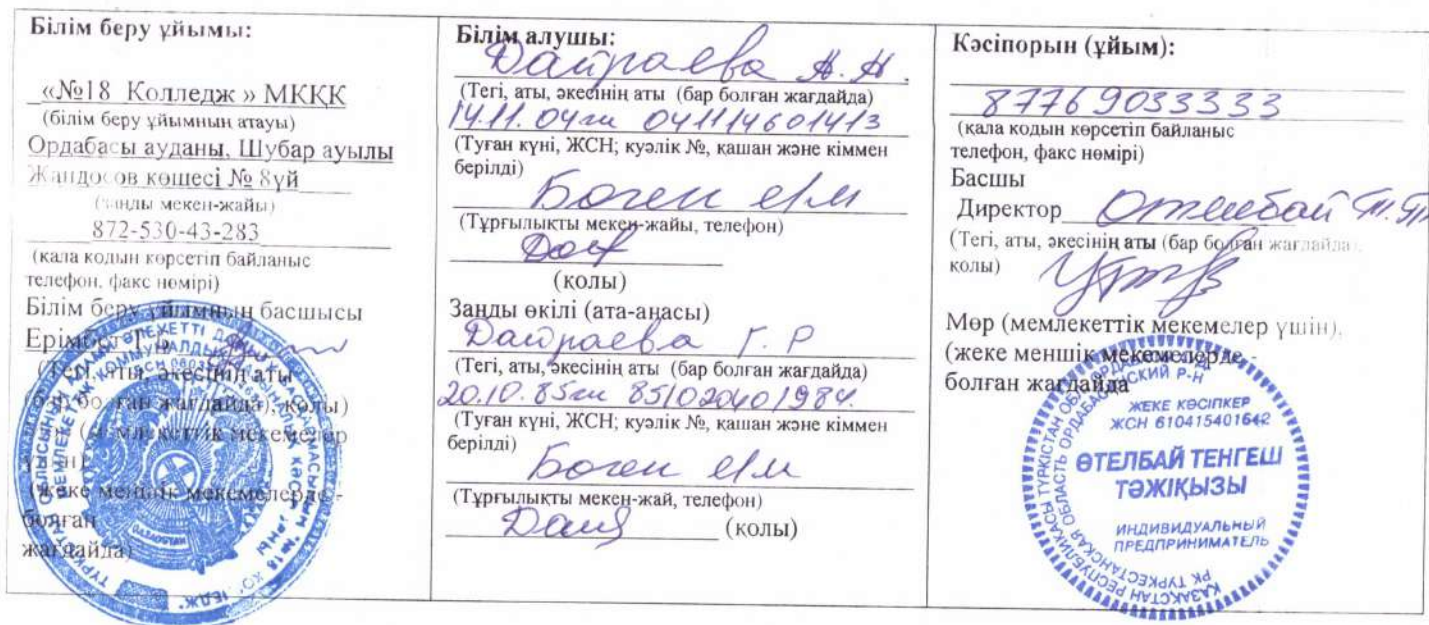 Білім беру ұйымы:
«№18 Колледж » МКҚК
(білім беру ұйымның атауы)
Ордабасы ауданы, Шубар ауылы
Жандосов көшесі № 8үй
(заңды мекен-жайы)
872-530-43-283
(қала кодын көрсетіп байланыс
телефон, факс нөмірі)
Білім беру ұйымның басшысы
(Тегі, аты, әкесінің аты
(бар болған жағдайда), қолы)
(мемлекеттік мекемелер
үшін),
(жеке меншік мекемелерде -
болған
жағдайда)
Білім алушы:
Дайраева А. А.
(Тегі, аты, әкесінің аты (бар болған жағдайда)
14.11.04ж 041114601413
(Туған күні, ЖСН; куәлік №, қашан және кіммен
берілді)
Боген
(Тұрғылықты мекен-жайы, телефон)
(қолы)
Заңды өкілі (ата-анасы)
Дайраева Г. Р
(Тегі, аты, әкесінің аты (бар болған жағдайда)
20.10.85ж 851020401984.
(Туған күні, ЖСН; куәлік №, қашан және кіммен
берілді)
Боген
(Тұрғылықты мекен-жай, телефон)
(қолы)
Кәсіпорын (ұйым):
87769033333
(қала кодын көрсетіп байланыс
телефон, факс нөмірі)
Басшы
Директор Өтелбай Т. Т
(Тегі, аты, әкесінің аты (бар болған жағдайда),
қолы)
Мөр (мемлекеттік мекемелер үшін),
(жеке меншік мекемелерде -
болған жағдайда
ЖЕКЕ КӘСІПКЕР
ЖСН 610415401642
ӨТЕЛБАЙ ТЕНГЕШ
ТӘЖІҚЫЗЫ
ИНДИВИДУАЛЬНЫЙ
ПРЕДПРИНИМАТЕЛЬ